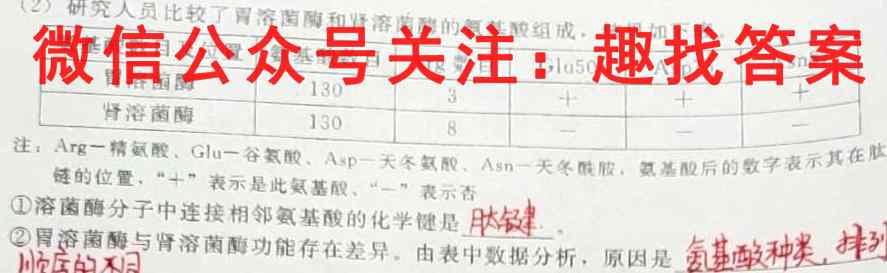 (2) 研究人员比较了胃溶菌酶和肾溶菌酶的氨基酸组成，
微信公众号关注：趣找答案
胃溶菌酶 130 3 + + +
肾溶菌酶 130 8 — — —
注：Arg—精氨酸、Glu—谷氨酸、Asp—天冬氨酸、Asn—天冬酰胺，氨基酸后的数字表示其在肽
链的位置，“+”表示是此氨基酸、“—”表示否
①溶菌酶分子中连接相邻氨基酸的化学键是 肽键 。
②胃溶菌酶与肾溶菌酶功能存在差异。由表中数据分析，原因是 氨基酸种类，排列
顺序的不同